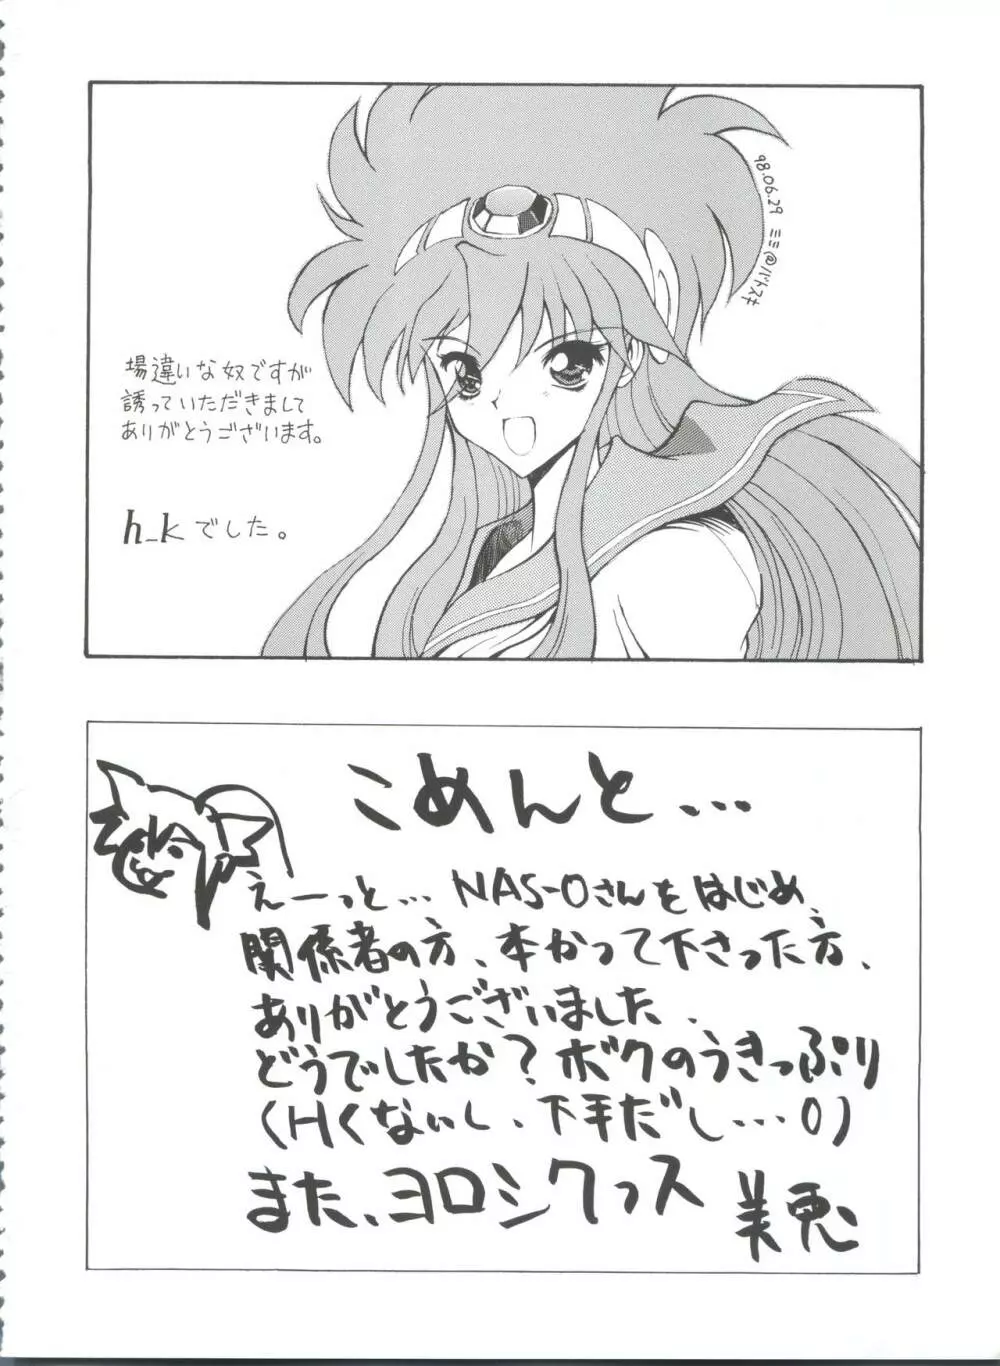 98.06.29 ミミ@バトスキ
場違いな奴ですが
誘っていただきまして
ありがとうございます。
h_kでした。
こめんと...
えーっと... NAS-Oさんをはじめ、
関係者の方、本かって下さった方、
ありがとうございました、
どうでしたか?ボクのうきっぷり
(Hくないし、下手だし...O)
また、ヨロシクっス
美兎